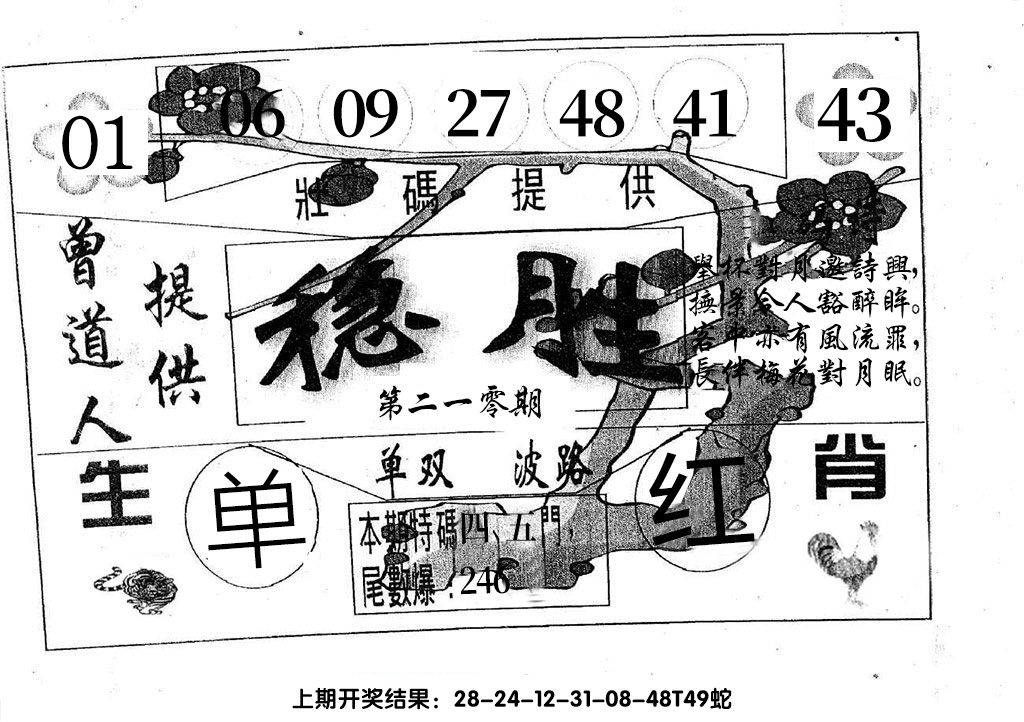 01 06 09 27 48 41 43
壯碼提供
曾道人
提供
稳胜
第二一零期
舉杯對月邀詩興，
撫景令人豁醉眸。
客中亦有風流罪，
長伴梅花對月眠。
单双 波路
生肖
单
红
本期特碼四、五門，
尾數爆：246
上期开奖结果：28-24-12-31-08-48T49蛇